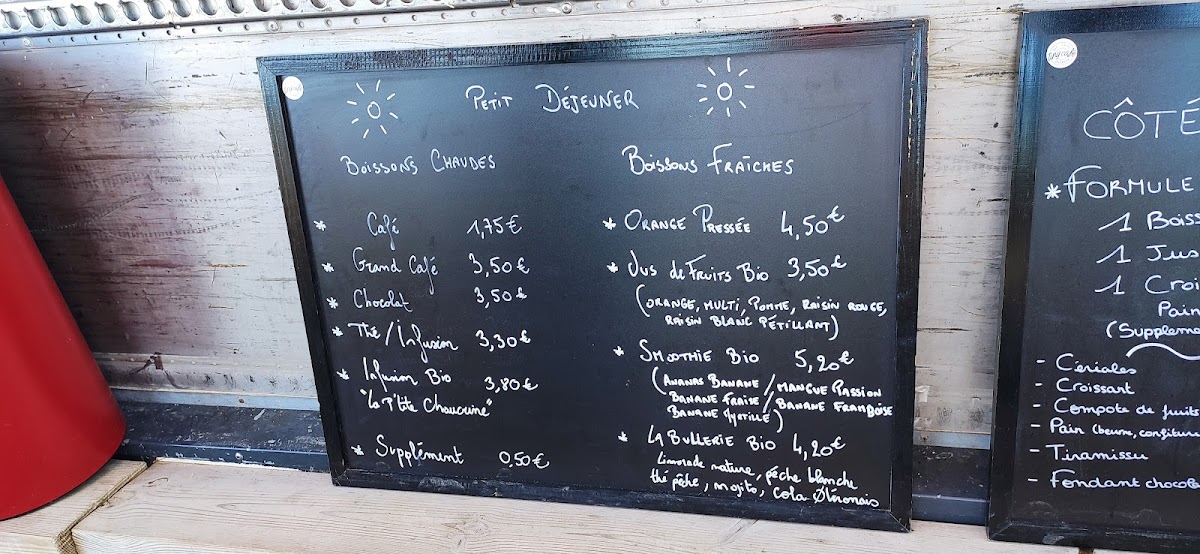 Petit Déjeuner
Boissons Chaudes
* Café 1,75€
* Grand Café 3,50€
* Chocolat 3,50€
* Thé/Infusion 3,30€
* Infusion Bio 3,80€
"La P'tite Chaucrine"
* Supplément 0,50€
Boissons Fraîches
* Orange Pressée 4,50€
* Jus de Fruits Bio 3,50€
(Orange, Multi, Pomme, Raisin Rouge,
Raisin Blanc Pétillant)
* Smoothie Bio 5,20€
(Ananas Banane / Mangue Passion
Banane Fraise / Banane Framboise
Banane Myrtille)
* La Bullerie Bio 4,20€
Limonade nature, pêche blanche
thé pêche, mojito, Cola Oléronais
CÔTÉ
* Formule
1 Boiss
1 Jus
1 Croi
Pain
(Suppleme
- Céréales
- Croissant
- Compote de fruits
- Pain (beurre, confiture
- Tiramissu
- Fondant chocola